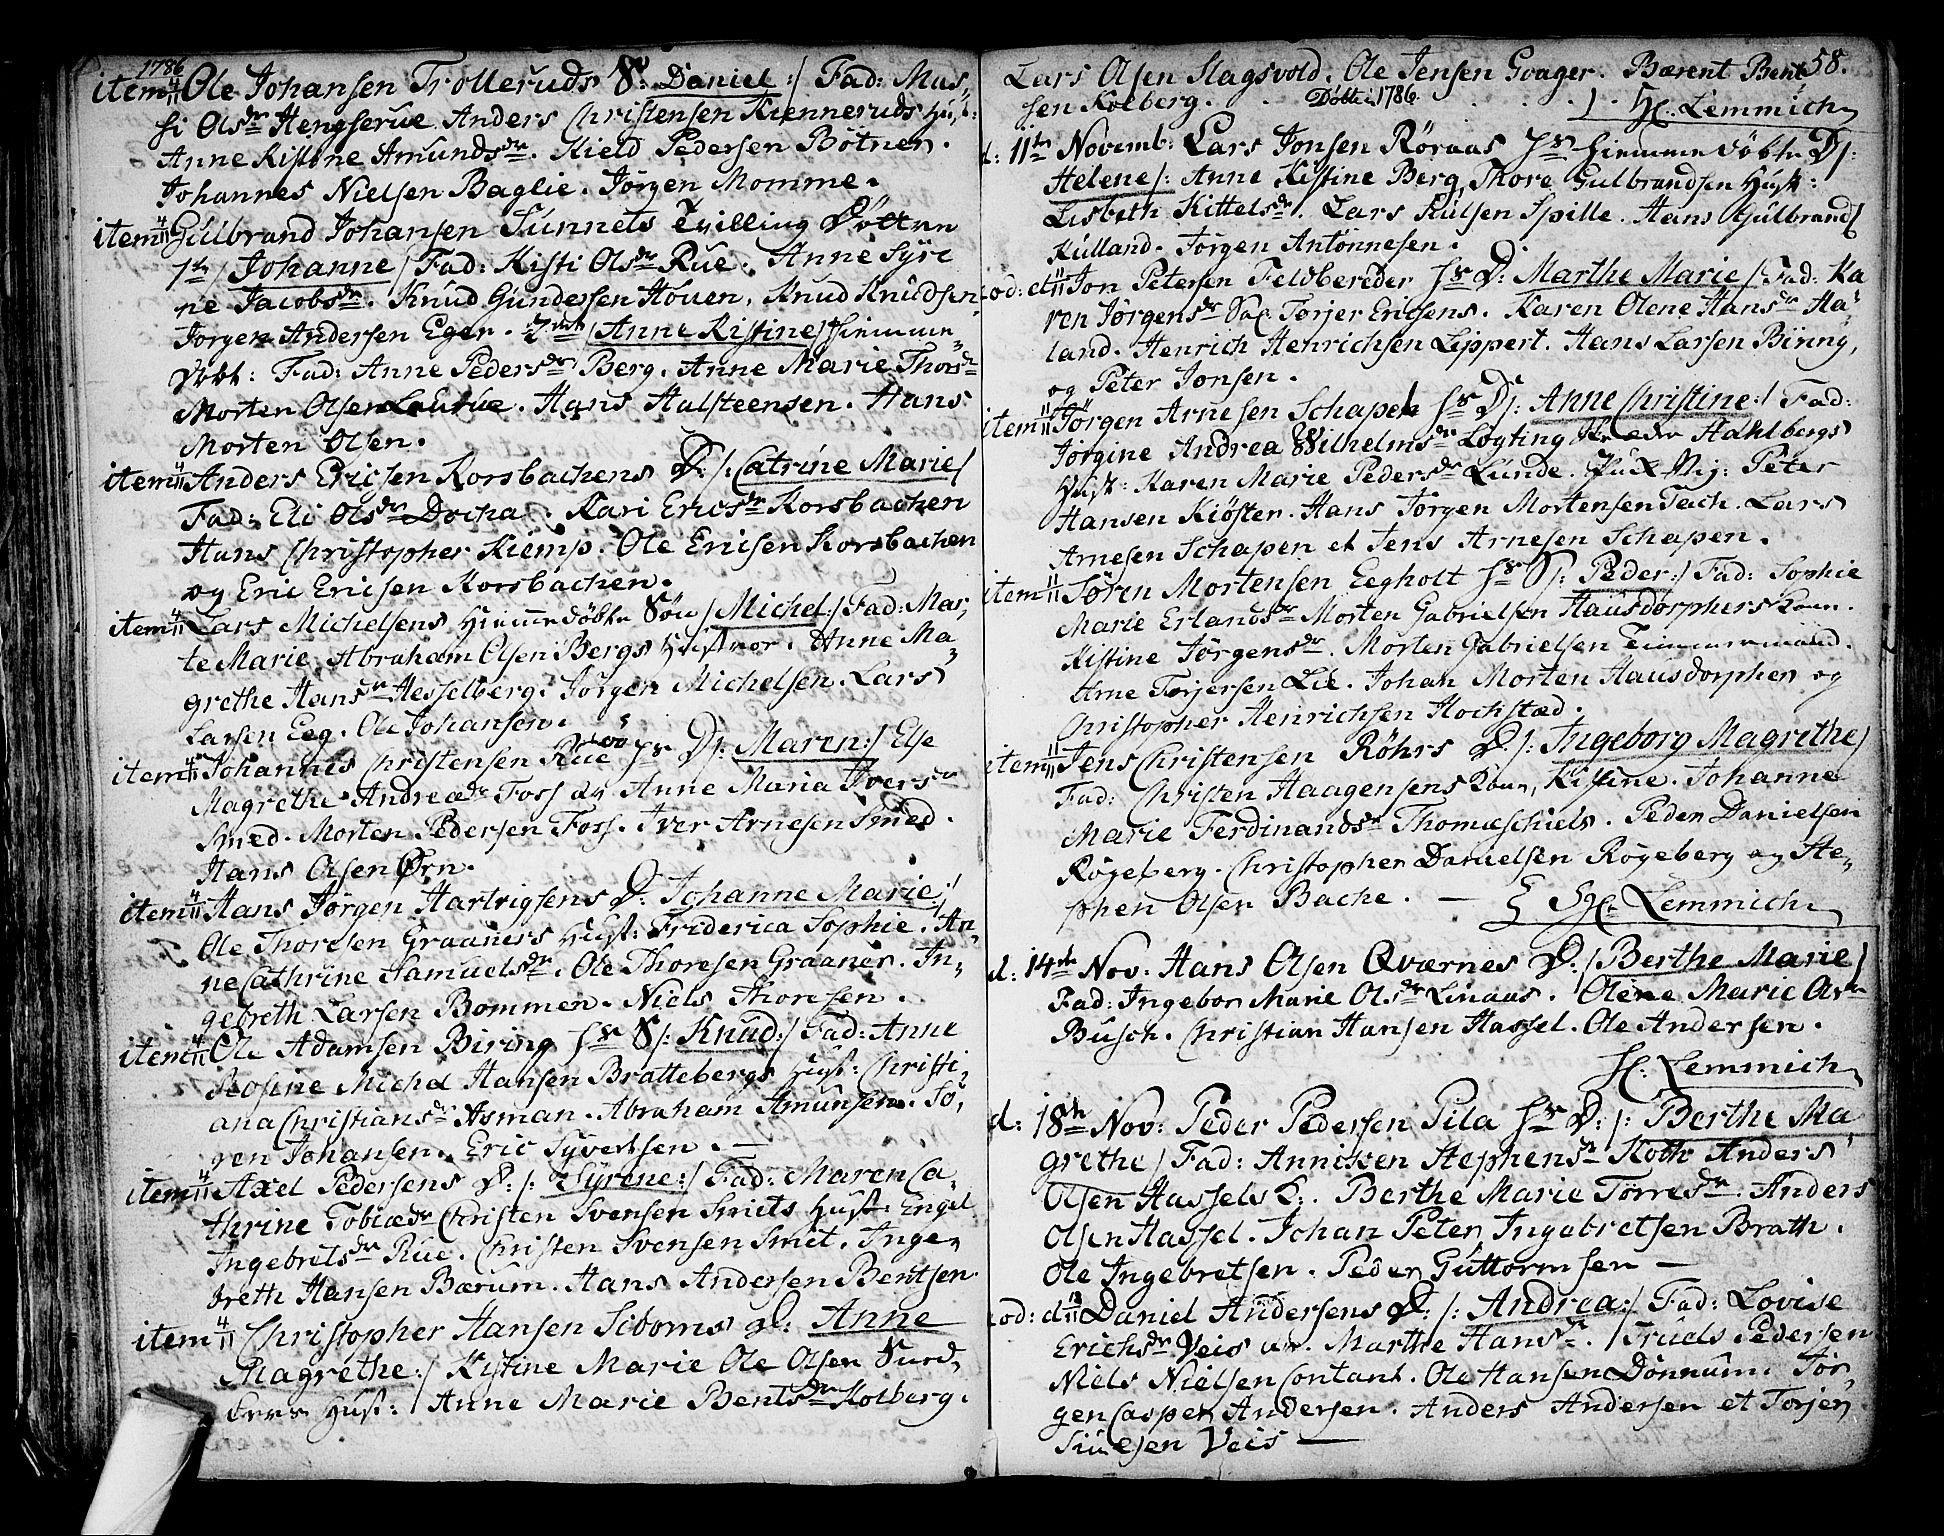 1786
item 4/11 Ole Johansen Trolleruds S: Daniel :/ Fad: Mas,
si Olsdr Hengserue Anders Christensen Kienneruds Hust:
Anne Kistine Amundsdr. Kield Pedersen Bøtner.
Johannes Nielsen Baglie. Jørgen Momme.
item 4/11 Gulbrand Johansen Sunnets Tvilling Døttre
1ste /Johanne/ Fad: Kisti Olsdr Rue. Anne Syre
ne Jacobsdr. Knud Gundersen Houen, Knud Knudsen
Jørgen Andersen Eger. 2den /Anne Kistine/ hiemme
døbt: Fad: Anne Pedersdr Berg. Anne Marie Thorsdr
Morten Olsen Laurue. Hans Halsteensen. Hans
Morten Olsen.
item 4/11 Anders Ericsen Korsbachens D: /: Catrine Marie/
Fad: Eli Olsdr Docka. Kari Ericsdr Korsbachen
Hans Christopher Kiemp. Ole Ericsen Korsbachen
og Eric Ericsen Korsbachen.
item 4/11 Lars Michelsens Hiemmedøbte Søn /Michel:/ Fad: Mar,
te Marie, Abraham Olsen Bergs Hustroe. Anne Ma
grethe Hansdr Hesselberg. Jørgen Michelsen. Lars
Larsen Eeg. Ole Johansen.
item 4/11 Johannes Christensen Rue Hs D/: Maren:/ Else
Magrethe Andreædr Foss og Anne Maria Iversdr
Smed. Morten Pedersen Foss. Iver Arnesen Smed.
Hans Olsen Ørn.
item 4/11 Hans Jørgen Hartvigsens D: Johanne Marie:/
Ole Thoresen Graaners Hust: Friderica Sophie. An,
ne Cathrine Samuelsdr. Ole Thoresen Graaner. In,
gebreth Larsen Bommen. Niels Thoresen.
item 4/11 Ole Adamsen Biring Hs S/: Knud:/ Fad: Anne
Rosine Michel Hansen Brattebergs Hust: Christi,
ana Christiansdr Asman. Abraham Amunsen. Sø,
ren Johansen. Eric Syvertsen.
item 4/11 Axel Pedersens D: /: Syrene:/ Fad: Maren Ca,
thrine Tobiædr Christen Svensen Smiets Hust: Engel
Ingebretsdr Rue. Christen Svensen Smit. Inge,
breth Hansen Bærum. Hans Andersen Bentsen
item 4/11 Christopher Hansen Seboms D: Anne
Magrethe:/ Kistine Marie Ole Olsen
Hust: Anne Marie Bentsdr Kolberg.
58.
Lars Olsen Hagsvold. Ole Jensen Goager. Bærent Bent
sen Kolberg. Lemmich
Døbte 1786.
d: 11te Novemb: Lars Jonsen Røraas Hs Hiemme døbte D/:
Helene/: Anne Kistine Berg, Thore Gulbrandsen Hust:
Lisbeth Kittelsdr. Lars Spille. Hans Gulbrands
Kulland. Jørgen Antonnesen.
eod: d 11/11 Jon Petersen Feldbereder Hs D: Marthe Marie/ Fad: Ka
ren Jørgensdr Torjer Ericsens. Karen Olene Hansdr Ha,
land. Henrich Henrichsen Lippert. Hans Larsen Binng,
og Peter Jonsen.
item 11/11 Jørgen Arnesen Schapen Hs D/: Anne Christine:/ Fad:
Jørgine Andrea Wilhelmsdr Logting Hahlbergs
Hust: Karen Marie Pedersdr Lunde. Peter
Hansen Kiøster. Hans Jørgen Mortensen Teach. Lars
Arnesen Schapen et Jens Arnesen Schapen.
item 11/11 Søren Mortensen Eegholt Hs S/: Peder:/ Fad: Sophie
Marie Erlandsdr Morten Gabrielsen Hausdorphers Kone.
Kistine Jørgensdr. Morten Gabrielsen Temmermand.
Arne Torjersen Lie. Johan Morten Hausdorpher og
Christopher Henrichsen Hochstæd.
item 11/11 Jens Christensen Røhrs D: /: Ingeborg Magrethe/
Fad: Christen Haagensens Kone, Kistine. Johanne
Marie Ferdinandsdr Thomæschiels. Peder Danielsen
Røgeberg. Christopher Danielsen Røgeberg og Ste,
phen Olsen Bache. Lemmich
d: 14de Nov: Hans Olsen Qværnes D: /Berthe Marie/
Fad: Ingebor Marie Olsdr Linaas. Olene Marie
Busch. Christian Hansen Hassel. Ole Andersen.
Lemmich
d: 18de Nov: Peder Pedersen Pila Hs D: /: Berthe Ma
grethe/ Fad: Annicken Stephensdr Koth Anders
Olsen Hassels K:. Berthe Marie Torresdr. Anders
Olsen Hassel. Johan Peter Ingebretsen Brath.
Ole Ingebretsen. Peder Guttormsen
eod: d 18/11 Daniel Andersens D: /: Andrea:/ Fad: Lovise
Erichsdr Veis Marthe Hansdr. Truels Pedersen
Niels Nielsen Contant. Ole Hansen Dønnum. Jør,
gen Casper Andersen. Anders Andersen et Torjer
Simesen Veis